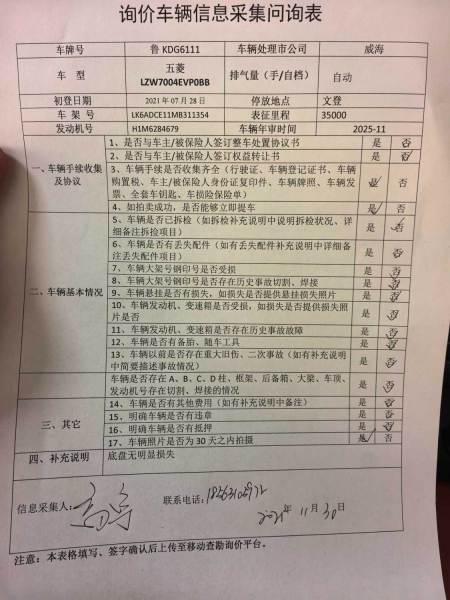 询价车辆信息采集问询表
车牌号 鲁 KDG6111 车辆处理市公司 威海
车 型 五菱 LZW7004EVP0BB 排气量（手/自档） 自动
初登日期 2021 年 07 月 28 日 停放地点 文登
车 架 号 LK6ADCE11MB311354 表征里程 35000
发动机号 H1M6284679 车辆年审时间 2025-11
一、车辆手续收集及协议
1、是否与车主/被保险人签订整车处置协议书 是 否
2、是否与车主/被保险人签订权益转让书 是 否
3、车辆手续是否收集齐全（行驶证、车辆登记证书、车辆
购置税、车主/被保险人身份证复印件、车辆牌照、车辆发
票、全套车钥匙、车损险保险单） 是 否
4、如拍卖成功，是否能够立即提车 是 否
二、车辆基本情况
5、车辆是否已拆检（如拆检补充说明中说明拆检状况、详
细备注拆检项目） 是 否
6、车辆是否有丢失配件（如有丢失配件补充说明中详细备
注丢失配件项目） 是 否
7、车辆大架号钢印号是否受损 是 否
8、车辆大架号钢印号是否存在历史事故切割、焊接 是 否
9、车辆悬挂是否有损失，如损失是否提供悬挂损失照片 是 否
10、车辆发动机、变速箱是否受损，如损失是否提供损失照
片是否 是 否
11、车辆发动机、变速箱是否存在历史事故故障 是 否
12、车辆是否有备胎、随车工具 是 否
13、车辆以前是否存在重大旧伤、二次事故（如有补充说明
中简要描述事故情况） 是 否
车辆是否存在 A、B、C、D 柱、框架、后备箱、大梁、车顶、
发动机号存在切割、焊接的情况 是 否
三、其它
14、车辆是否有其他费用（如有补充说明中备注） 是 否
15、明确车辆是否有违章 是 否
16、明确车辆是否有抵押 是 否
17、车辆照片是否为 30 天之内拍摄 是 否
四、补充说明 底盘无明显损失
信息采集人： 联系电话：
年 11 月 30 日
注意：本表格填写、签字确认后上传至移动查勘询价平台。